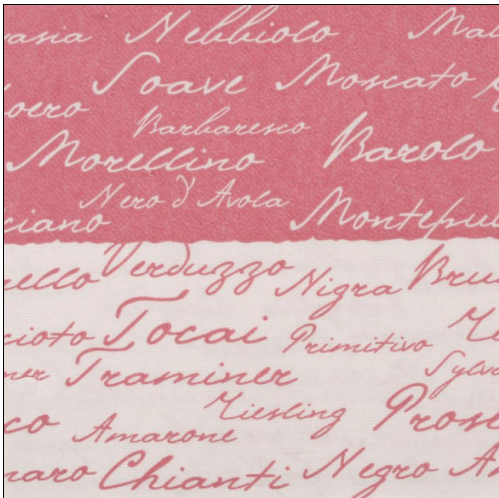 vasia Nebbiolo Ma
Soave Moscato
oero Barbaresco
Morellino Barolo
Nero d'Avola
ciano Montepul
rello Verduzzo Nigra Bru
cioto Tocai Primitivo
ner Traminer Sylva
co Amarone Riesling Pros
naro Chianti Negro A